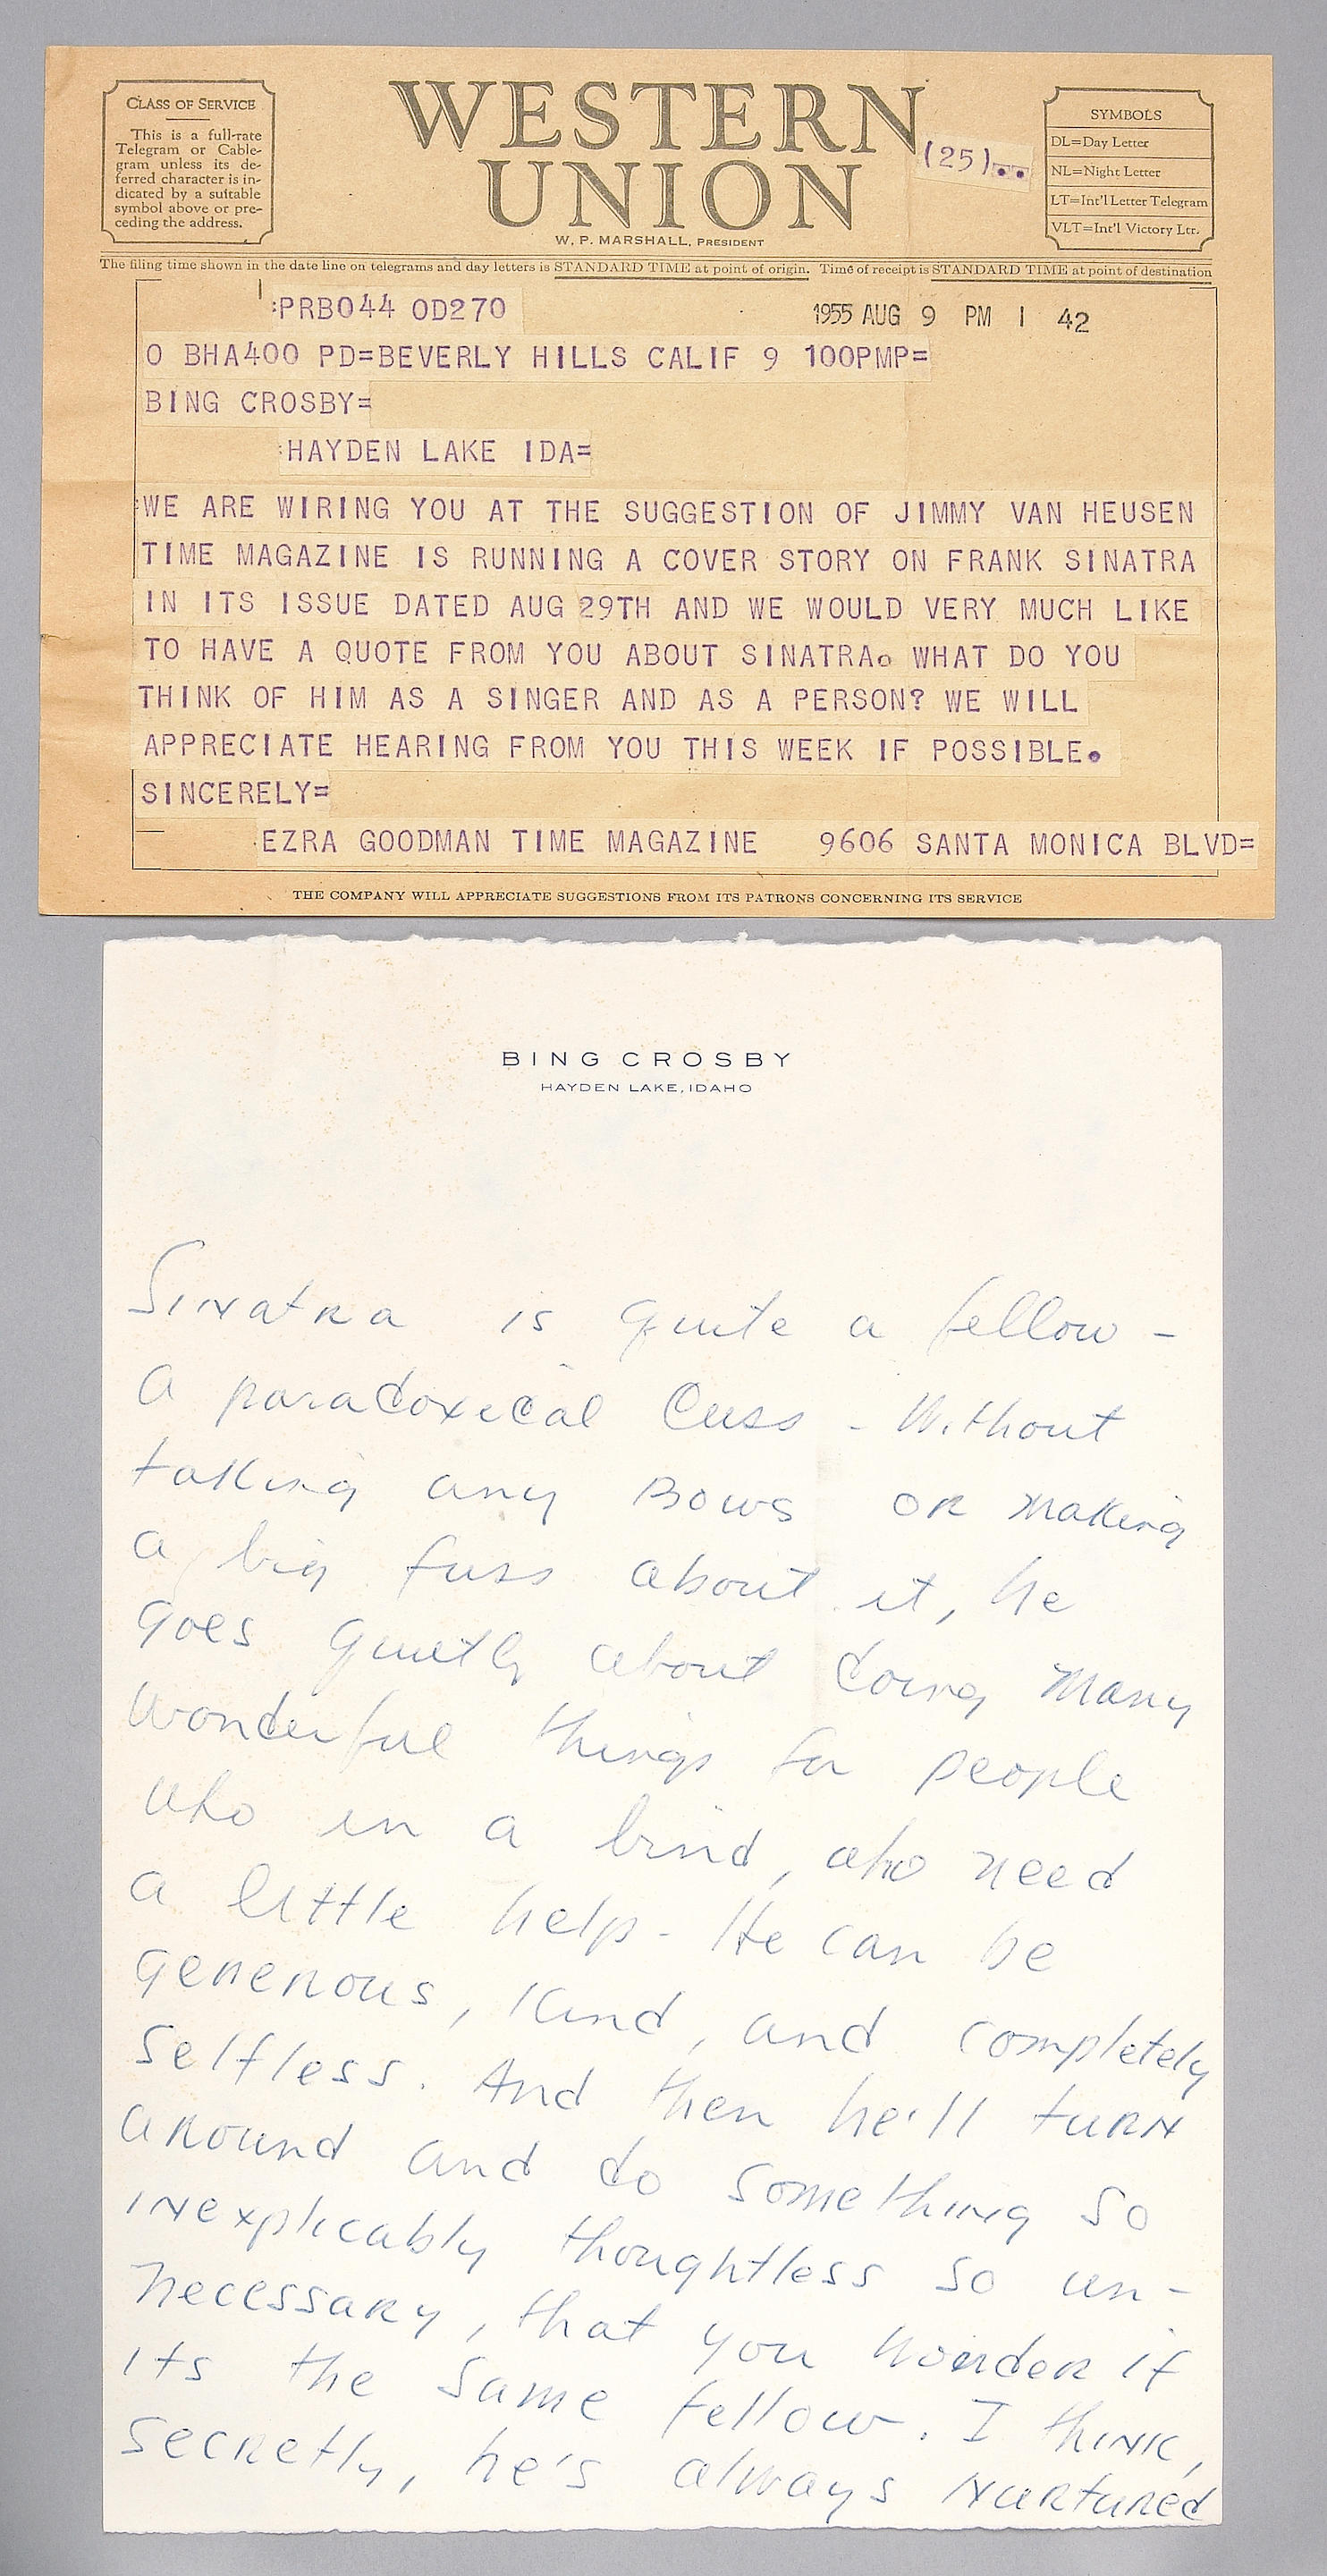 CLASS OF SERVICE
This is a full-rate
Telegram or Cable-
gram unless its de-
ferred character is in-
dicated by a suitable
symbol above or pre-
ceding the address.
WESTERN
UNION
W. P. MARSHALL, PRESIDENT
(25)..
SYMBOLS
DL=Day Letter
NL=Night Letter
LT=Int'l Letter Telegram
VLT=Int'l Victory Ltr.
The filing time shown in the date line on telegrams and day letters is STANDARD TIME at point of origin. Time of receipt is STANDARD TIME at point of destination
:PRB044 OD270 1955 AUG 9 PM 1 42
O BHA400 PD=BEVERLY HILLS CALIF 9 100PMP=
BING CROSBY=
:HAYDEN LAKE IDA=
:WE ARE WIRING YOU AT THE SUGGESTION OF JIMMY VAN HEUSEN
TIME MAGAZINE IS RUNNING A COVER STORY ON FRANK SINATRA
IN ITS ISSUE DATED AUG 29TH AND WE WOULD VERY MUCH LIKE
TO HAVE A QUOTE FROM YOU ABOUT SINATRA. WHAT DO YOU
THINK OF HIM AS A SINGER AND AS A PERSON? WE WILL
APPRECIATE HEARING FROM YOU THIS WEEK IF POSSIBLE.
SINCERELY=
EZRA GOODMAN TIME MAGAZINE 9606 SANTA MONICA BLVD=
THE COMPANY WILL APPRECIATE SUGGESTIONS FROM ITS PATRONS CONCERNING ITS SERVICE
BING CROSBY
HAYDEN LAKE, IDAHO
Sinatra is quite a fellow -
a paradoxical cuss - Without
taking any bows or making
a big fuss about it, he
goes quietly about doing many
wonderful things for people
who in a bind, who need
a little help - He can be
generous, kind, and completely
selfless. And then he'll turn
around and do something so
inexplicably thoughtless so un-
necessary, that you wonder if
its the same fellow. I think,
secretly, he's always nurtured